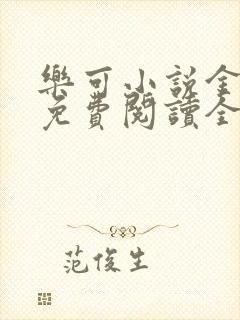 樂可小説全
免費閱讀全
范俊生